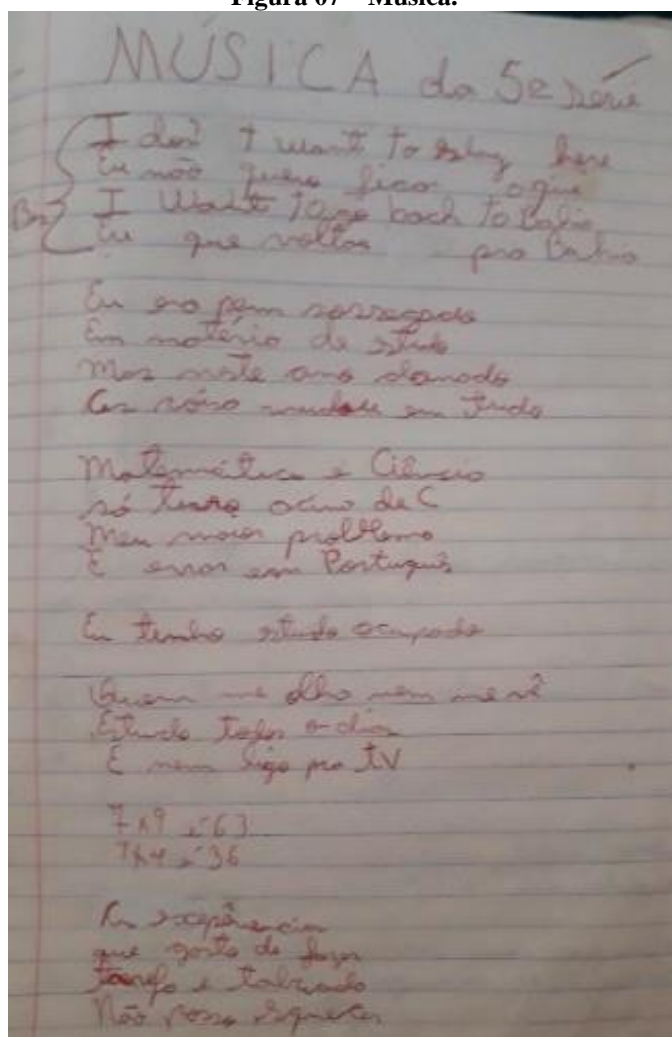 Figura 07 – Música.
MÚSICA da 5ª série
I don't want to stay here
Eu não quero ficar aqui
I Want To go back to Bahia
Eu que voltar pra Bahia
Bis
Eu era
Em matéria de estudo
Mas neste ano danado
em tudo
Matemática e Ciência
só tirava de C
Meu maior problema
É errar em Português
Eu tenho estudo ocupado
Quem me olha nem me vê
Estudo todos o dia
E nem ligo pra TV
7x9 é 63
é 36
que gosto de fazer
tarefa e tabuada
Não posso esquecer